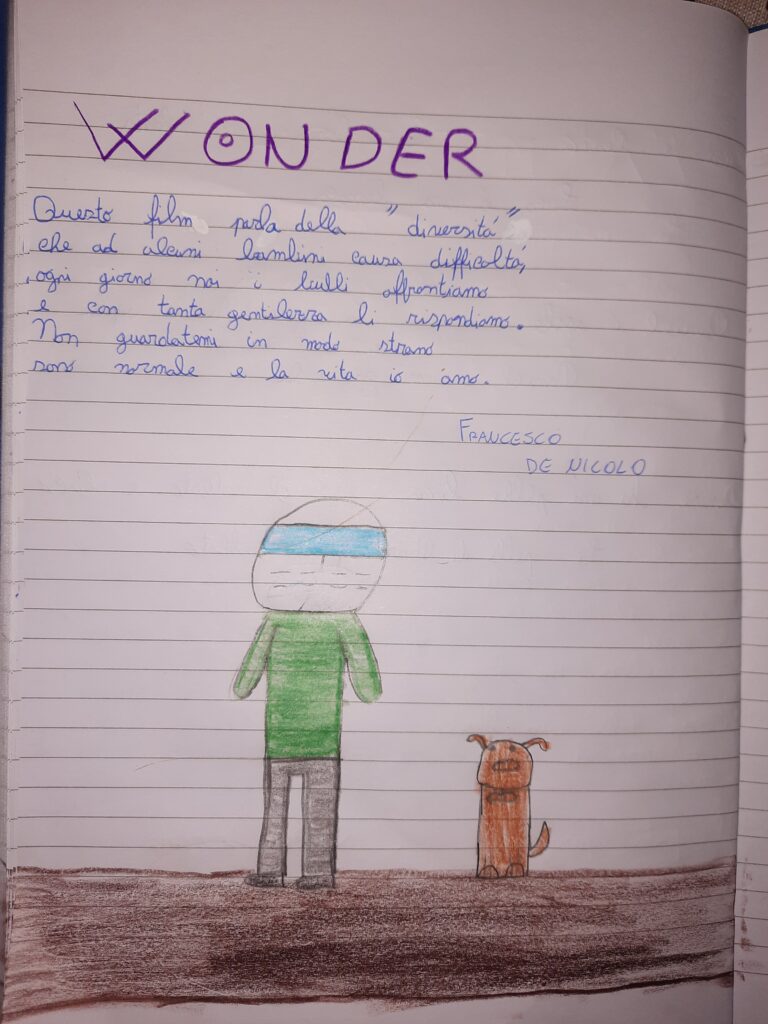 WONDER
Questo film parla della "diversitá"
che ad alcuni bambini causa difficoltá,
ogni giorno noi i bulli affrontiamo
e con tanta gentilezza li rispondiamo.
Non guardatemi in modo strano
sono normale e la vita io amo.
FRANCESCO
DE NICOLO